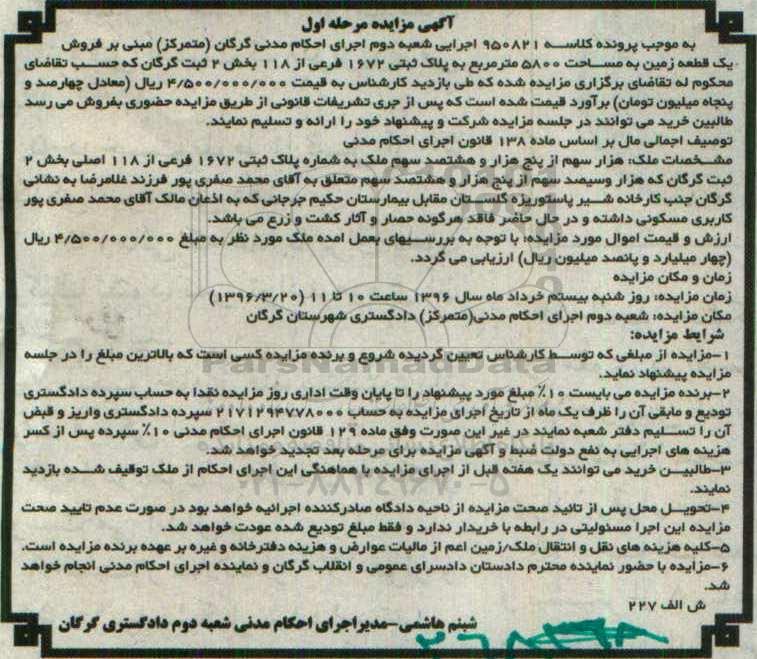 آگهی مزایده مرحله اول
به موجب پرونده کلاسه ۹۵۰۸۲۱ اجرایی شعبه دوم اجرای احکام مدنی گرگان (متمرکز) مبنی بر فروش
یک قطعه زمین به مساحت ۵۸۰۰ مترمربع به پلاک ثبتی ۱۶۷۲ فرعی از ۱۱۸ بخش ۲ ثبت گرگان که حسب تقاضای
محکوم له تقاضای برگزاری مزایده شده که طی بازدید کارشناس به قیمت ۴/۵۰۰/۰۰۰/۰۰۰ ریال (معادل چهارصد و
پنجاه میلیون تومان) برآورد قیمت شده است که پس از جری تشریفات قانونی از طریق مزایده حضوری بفروش می رسد
طالبین خرید می توانند در جلسه مزایده شرکت و پیشنهاد خود را ارائه و تسلیم نمایند.
توصیف اجمالی مال بر اساس ماده ۱۳۸ قانون اجرای احکام مدنی
مشخصات ملک: هزار سهم از پنج هزار و هشتصد سهم ملک به شماره پلاک ثبتی ۱۶۷۲ فرعی از ۱۱۸ اصلی بخش ۲
ثبت گرگان که هزار وسیصد سهم از پنج هزار و هشتصد سهم متعلق به آقای محمد صفری پور فرزند غلامرضا به نشانی
گرگان جنب کارخانه شیر پاستوریزه گلستان مقابل بیمارستان حکیم جرجانی که به اذعان مالک آقای محمد صفری پور
کاربری مسکونی داشته و در حال حاضر فاقد هرگونه حصار و آثار کشت و زرع می باشد.
ارزش و قیمت اموال مورد مزایده: با توجه به بررسیهای بعمل امده ملک مورد نظر به مبلغ ۴/۵۰۰/۰۰۰/۰۰۰ ریال
(چهار میلیارد و پانصد میلیون ریال) ارزیابی می گردد.
زمان و مکان مزایده
زمان مزایده: روز شنبه بیستم خرداد ماه سال ۱۳۹۶ ساعت ۱۰ تا ۱۱ (۱۳۹۶/۳/۲۰)
مکان مزایده: شعبه دوم اجرای احکام مدنی(متمرکز) دادگستری شهرستان گرگان
شرایط مزایده:
۱-مزایده از مبلغی که توسط کارشناس تعیین گردیده شروع و برنده مزایده کسی است که بالاترین مبلغ را در جلسه
مزایده پیشنهاد نماید.
۲-برنده مزایده می بایست ۱۰٪ مبلغ مورد پیشنهاد را تا پایان وقت اداری روز مزایده نقدا به حساب سپرده دادگستری
تودیع و مابقی آن را ظرف یک ماه از تاریخ اجرای مزایده به حساب ۲۱۷۱۲۹۴۷۷۸۰۰۰ سپرده دادگستری واریز و قبض
آن را تسلیم دفتر شعبه نمایند در غیر این صورت وفق ماده ۱۲۹ قانون اجرای احکام مدنی ۱۰٪ سپرده پس از کسر
هزینه های اجرایی به نفع دولت ضبط و آگهی مزایده برای مرحله بعد تجدید خواهد شد.
۳-طالبین خرید می توانند یک هفته قبل از اجرای مزایده با هماهنگی این اجرای احکام از ملک توقیف شده بازدید
نمایند.
۴-تحویل محل پس از تائید صحت مزایده از ناحیه دادگاه صادرکننده اجرائیه خواهد بود در صورت عدم تایید صحت
مزایده این اجرا مسئولیتی در رابطه با خریدار ندارد و فقط مبلغ تودیع شده عودت خواهد شد.
۵-کلیه هزینه های نقل و انتقال ملک/زمین اعم از مالیات عوارض و هزینه دفترخانه و غیره بر عهده برنده مزایده است.
۶-مزایده با حضور نماینده محترم دادستان دادسرای عمومی و انقلاب گرگان و نماینده اجرای احکام مدنی انجام خواهد
شد.
ش الف ۲۲۷
شبنم هاشمی-مدیراجرای احکام مدنی شعبه دوم دادگستری گرگان
ParsNamadData
۰۲۱-۸۸۳۴۹۶۷۰-۵